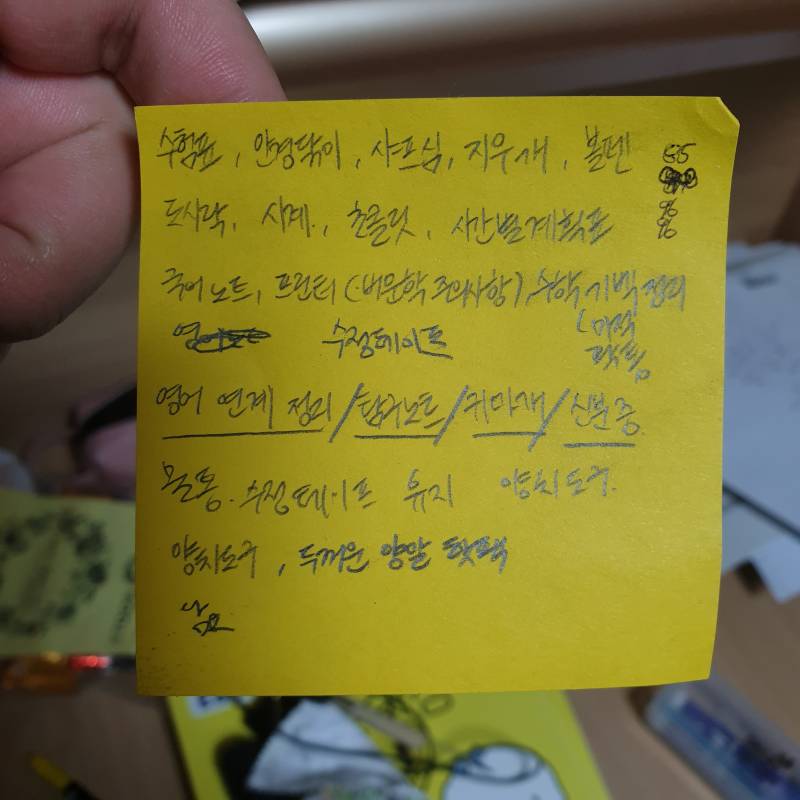 수험표, 안경닦이, 샤프심, 지우개, 볼펜
도시락, 시계, 초콜릿, 시간별계획표
국어노트, 프린터(·비문학 주의사항), 수학 기백 정리
수정테이프
영어 연계 정리/탐구노트/귀마개/신분증
물통. 수정테이프 휴지 양치도구.
양치도구, 두꺼운 양말 핫팩